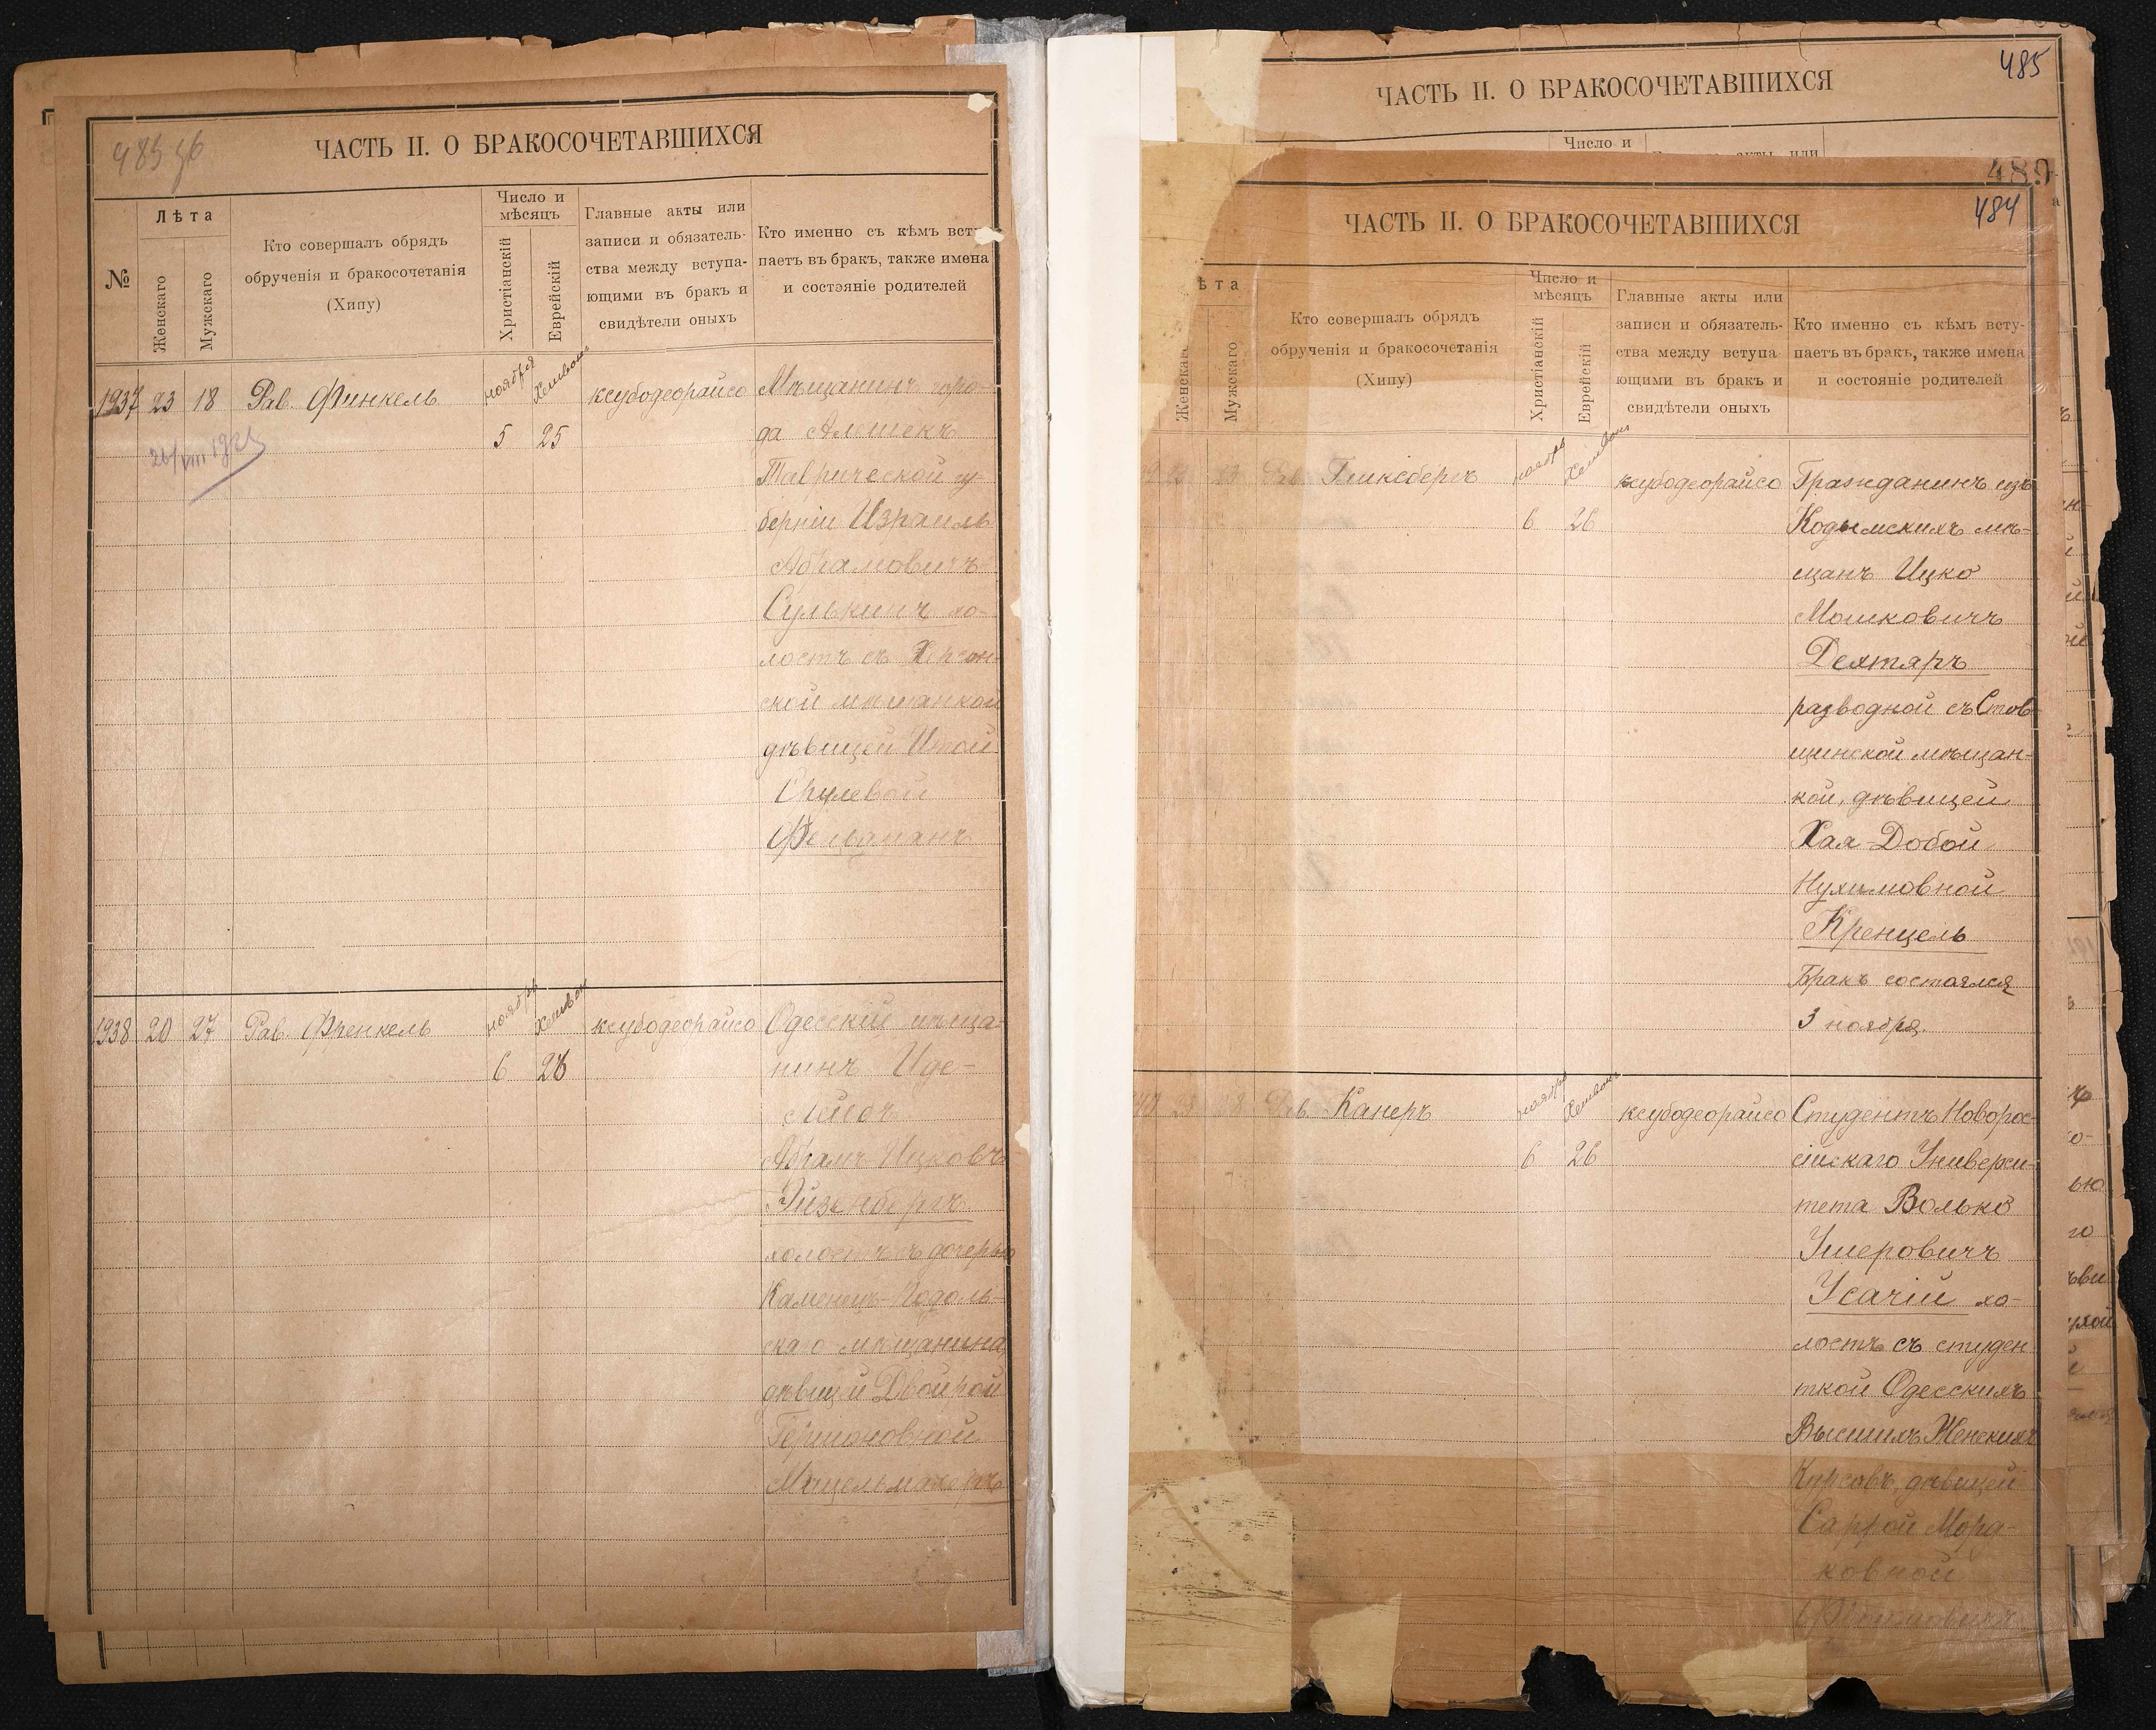 483 зб
ЧАСТЬ II. О БРАКОСОЧЕТАВШИХСЯ
№
Лѣта
Женскаго
Мужскаго
Кто совершалъ обрядъ
обрученія и бракосочетанія
(Хипу)
Число и
мѣсяцъ
Христіанскій
Еврейскій
Главные акты или
записи и обязатель-
ства между вступа-
ющими въ бракъ и
свидѣтели оныхъ
Кто именно съ кѣмъ всту
паетъ въ бракъ, также имена
и состояніе родителей
1937 23 18 Рав. Финкель
ноября
5 25
ксубодеорайсо
Мѣщанинъ горо-
да Алешекъ
Таврической гу-
берніи Израиль
Абрамовичъ
Сулькинъ хо-
лостъ съ Херсон-
ской мѣщанкой
дѣвицей Итой
Срулевой
1938 20 27 Рав. Френкель
ноября
6 26
ксубодеорайсо
Одесскій мѣща-
нинъ Иде-
Лейба
Абрамъ-Ицковъ
Эйзенбергъ
холостъ съ дочерью
Каменецъ-Подоль-
скаго мѣщанина,
дѣвицей Двойрой
485
ЧАСТЬ II. О БРАКОСОЧЕТАВШИХСЯ
Число и
акты или
484
ЧАСТЬ II. О БРАКОСОЧЕТАВШИХСЯ
ѣта
Женскаг
Мужскаго
Кто совершалъ обрядъ
обрученія и бракосочетанія
(Хипу)
Число и
мѣсяцъ
Христіанскій
Еврейскій
Главные акты или
записи и обязатель-
ства между вступа
ющими въ бракъ и
свидѣтели оныхъ
Кто именно съ кѣмъ всту-
паетъ въ бракъ, также имена
и состояніе родителей
Рав. Гликсбергъ
ноября
6 26
ксубодеорайсо
Гражданинъ изъ
Кодымскихъ мѣ-
щанъ Ицко
Мошковичъ
Дехтяръ
разводной съ Став
щинской мѣщан-
кой, дѣвицей
Хая-Добой
Нухимовной
Кренцель
Бракъ состоялся
3 ноября.
Рав. Канеръ
ноября
6 26
ксубодеорайсо
Студентъ Новорос-
сійскаго Универси-
тета Волько
Ушеровичъ
Усачій хо-
лостъ съ студен
ткой Одесскихъ
Высшихъ Женскихъ
Курсовъ, дѣвицей
Саррой Морд-
ковной